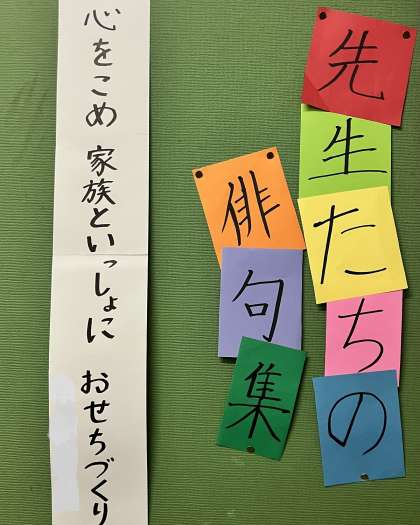 先生たちの
俳句集
心をこめ 家族といっしょに おせちづくり